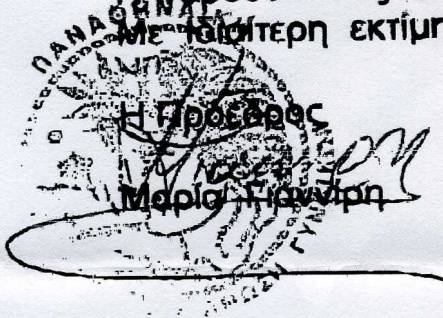 Με ιδιαίτερη εκτίμη
Η Πρόεδρος
Μαρία Γιαννίρη
ΠΑΝΑΘΗΝΑ